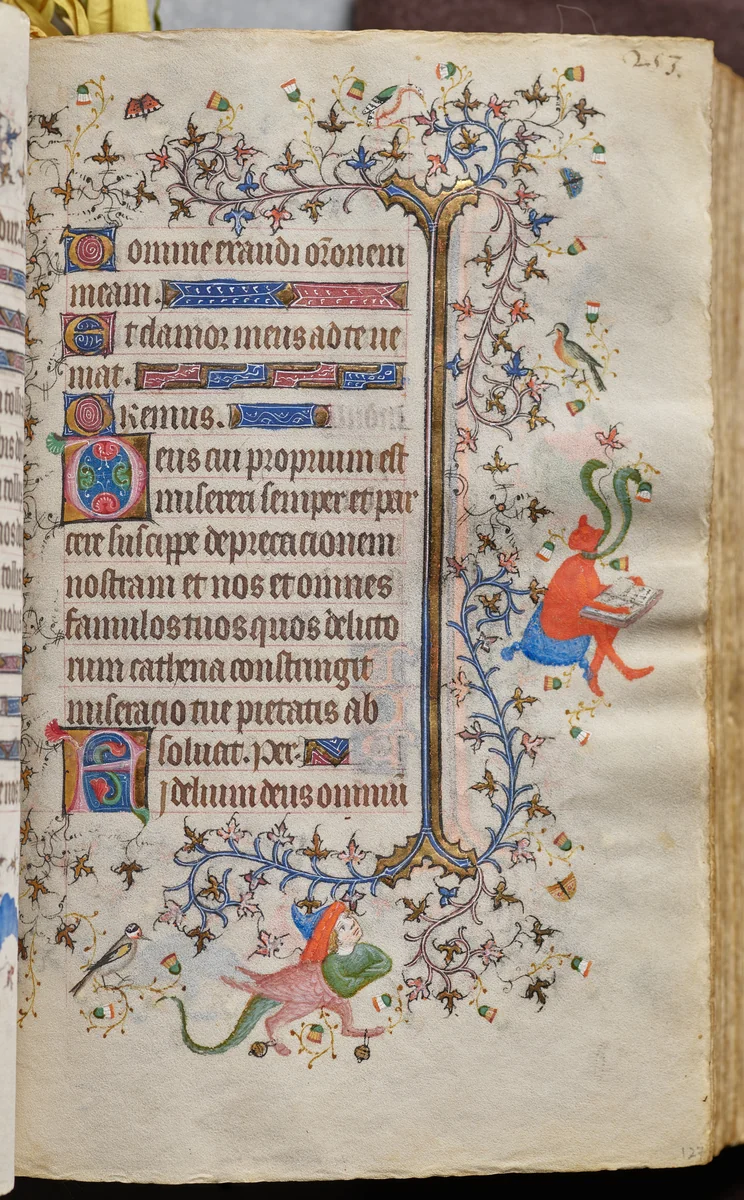 253.
Domine exaudi or̄onem
meam.
Et clamor meus ad te ue
niat.
Oremus.
Deus cui proprium est
misereri semper et par
cere suscippe deprecacionem
nostram et nos et omnes
famulos tuos quos delicto
rum cathena constringit
miseracio tue pietatis ab
soluat. Per.
Fidelium deus omniu
127